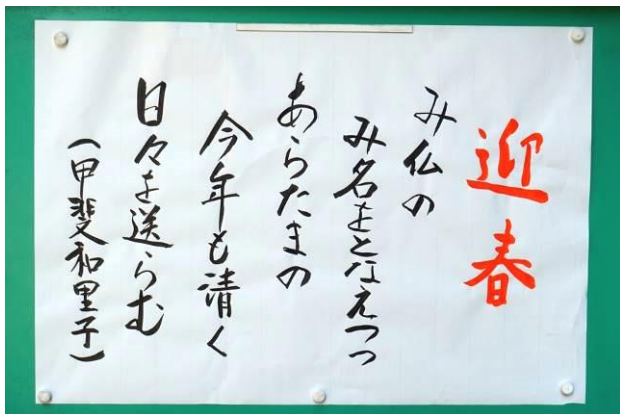 迎春
み仏の
み名をとなえつつ
あらたまの
今年も清く
日々を送らむ
(甲斐和里子)